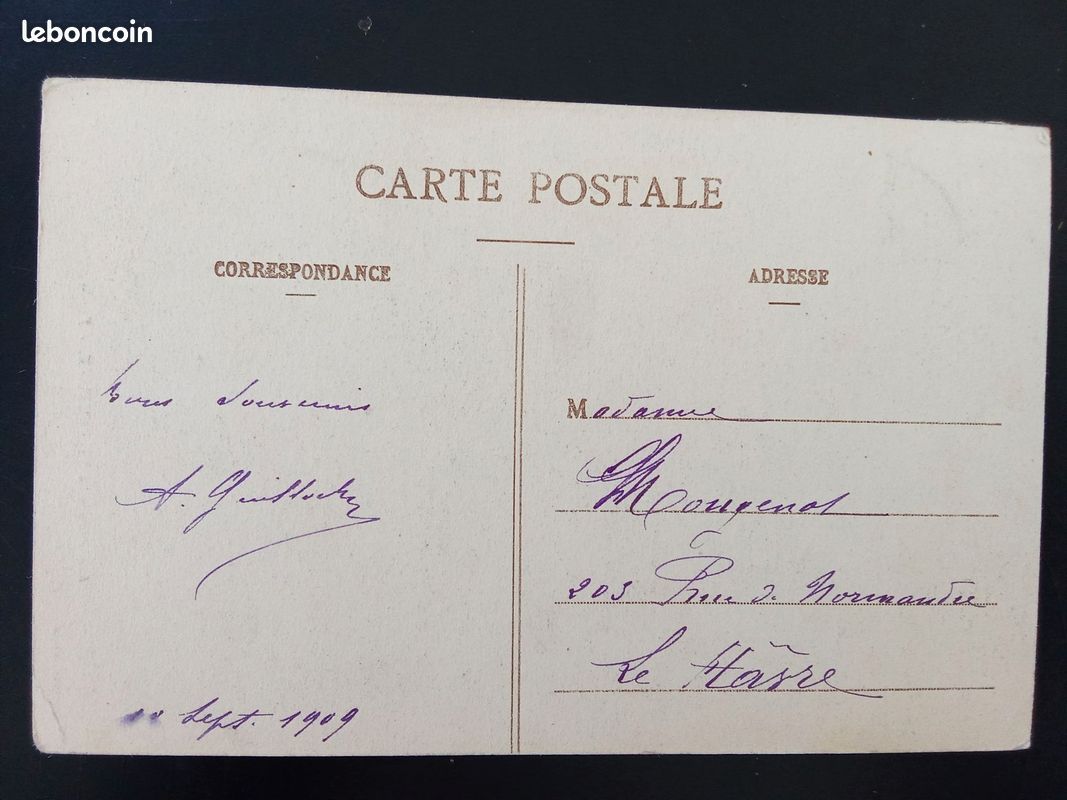 leboncoin
CARTE POSTALE
CORRESPONDANCE
ADRESSE
Bons souvenirs
A.
Sept. 1909
Madame
Mougenot
203 Rue de Normandie
Le Hâvre